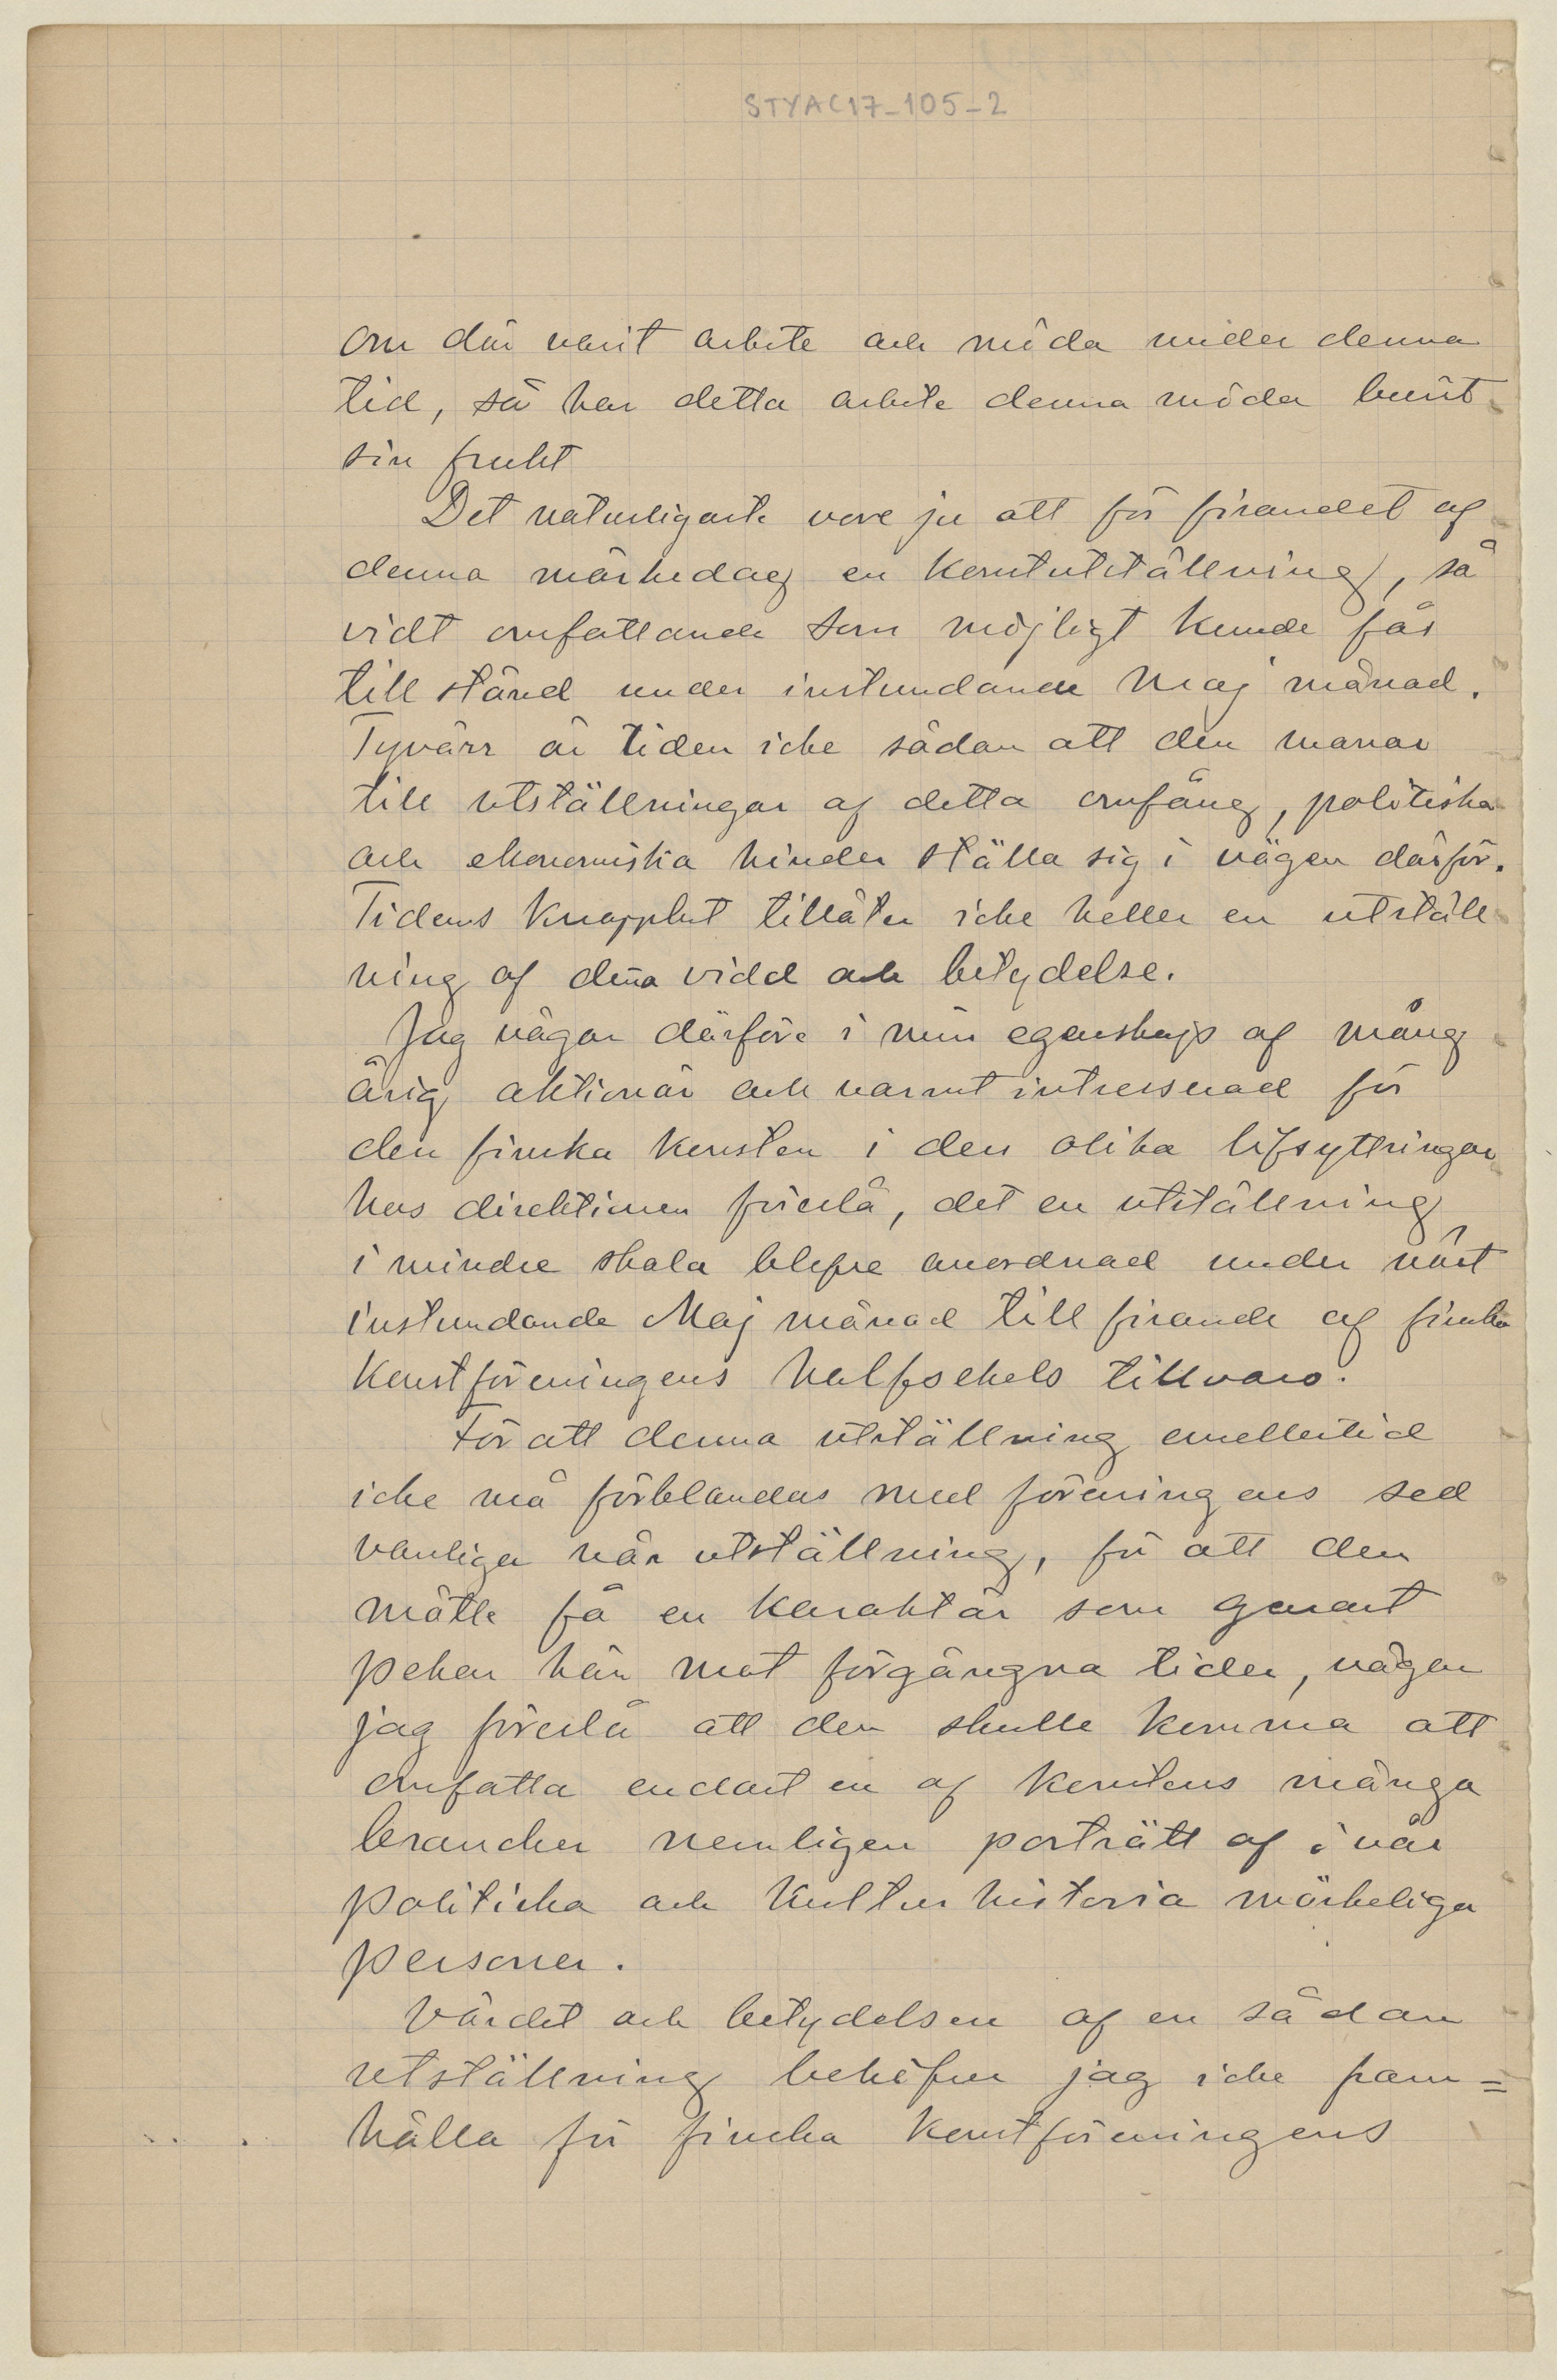 STYAC17_105_2
om där varit arbete och möda under denna
tid, så har detta arbete denna möda burit
sin frukt
Det naturligaste vore ju att för firandet af
denna märkedag en konstutställning, så
vidt omfattande som möjligt kunde fås
till stånd under instundande Maj månad.
Tyvärr är tiden icke sådan att den manar
till utställningar af detta omfång, politiska
och ekonomiska hinder ställa sig i vägen därför.
Tidens knapphet tillåter icke heller en utställ
ning af denna vidd och betydelse.
Jag vågar därföre i min egenskap af mång
årig aktionär och varmt intresserad för
den finska konsten i den olika lifsyttringar
hos direktionen föreslå, det en utställning
i mindre skala blefve anordnad under näst
instundande Maj månad till firande af finska
Konstföreningens halfsekels tillvaro.
För att denna utställning emellertid
icke må förblandas med föreningens sed
vanliga vår utställning, för att den
måtte få en karaktär som genast
pekar hän mot förgångna tider, vågar
jag föreslå att den skulle komma att
omfatta endast en af konstens många
brancher nemligen porträtt af i vår
politiska och kulturhistoria märkeliga
personer.
Värdet och betydelsen af en sådan
utställning behöfver jag icke fram=
hålla för finska konstföreningens